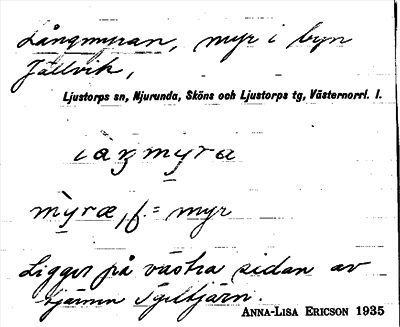 Långmyran, myr i byn
Jällvik,
Ljustorps sn, Njurunda, Sköns och Ljustorps tg, Västernorrl. l.
myræ, f. = myr
Ligger på västra sidan av
tjärnen Igeltjärn.
ANNA-LISA ERICSON 1935